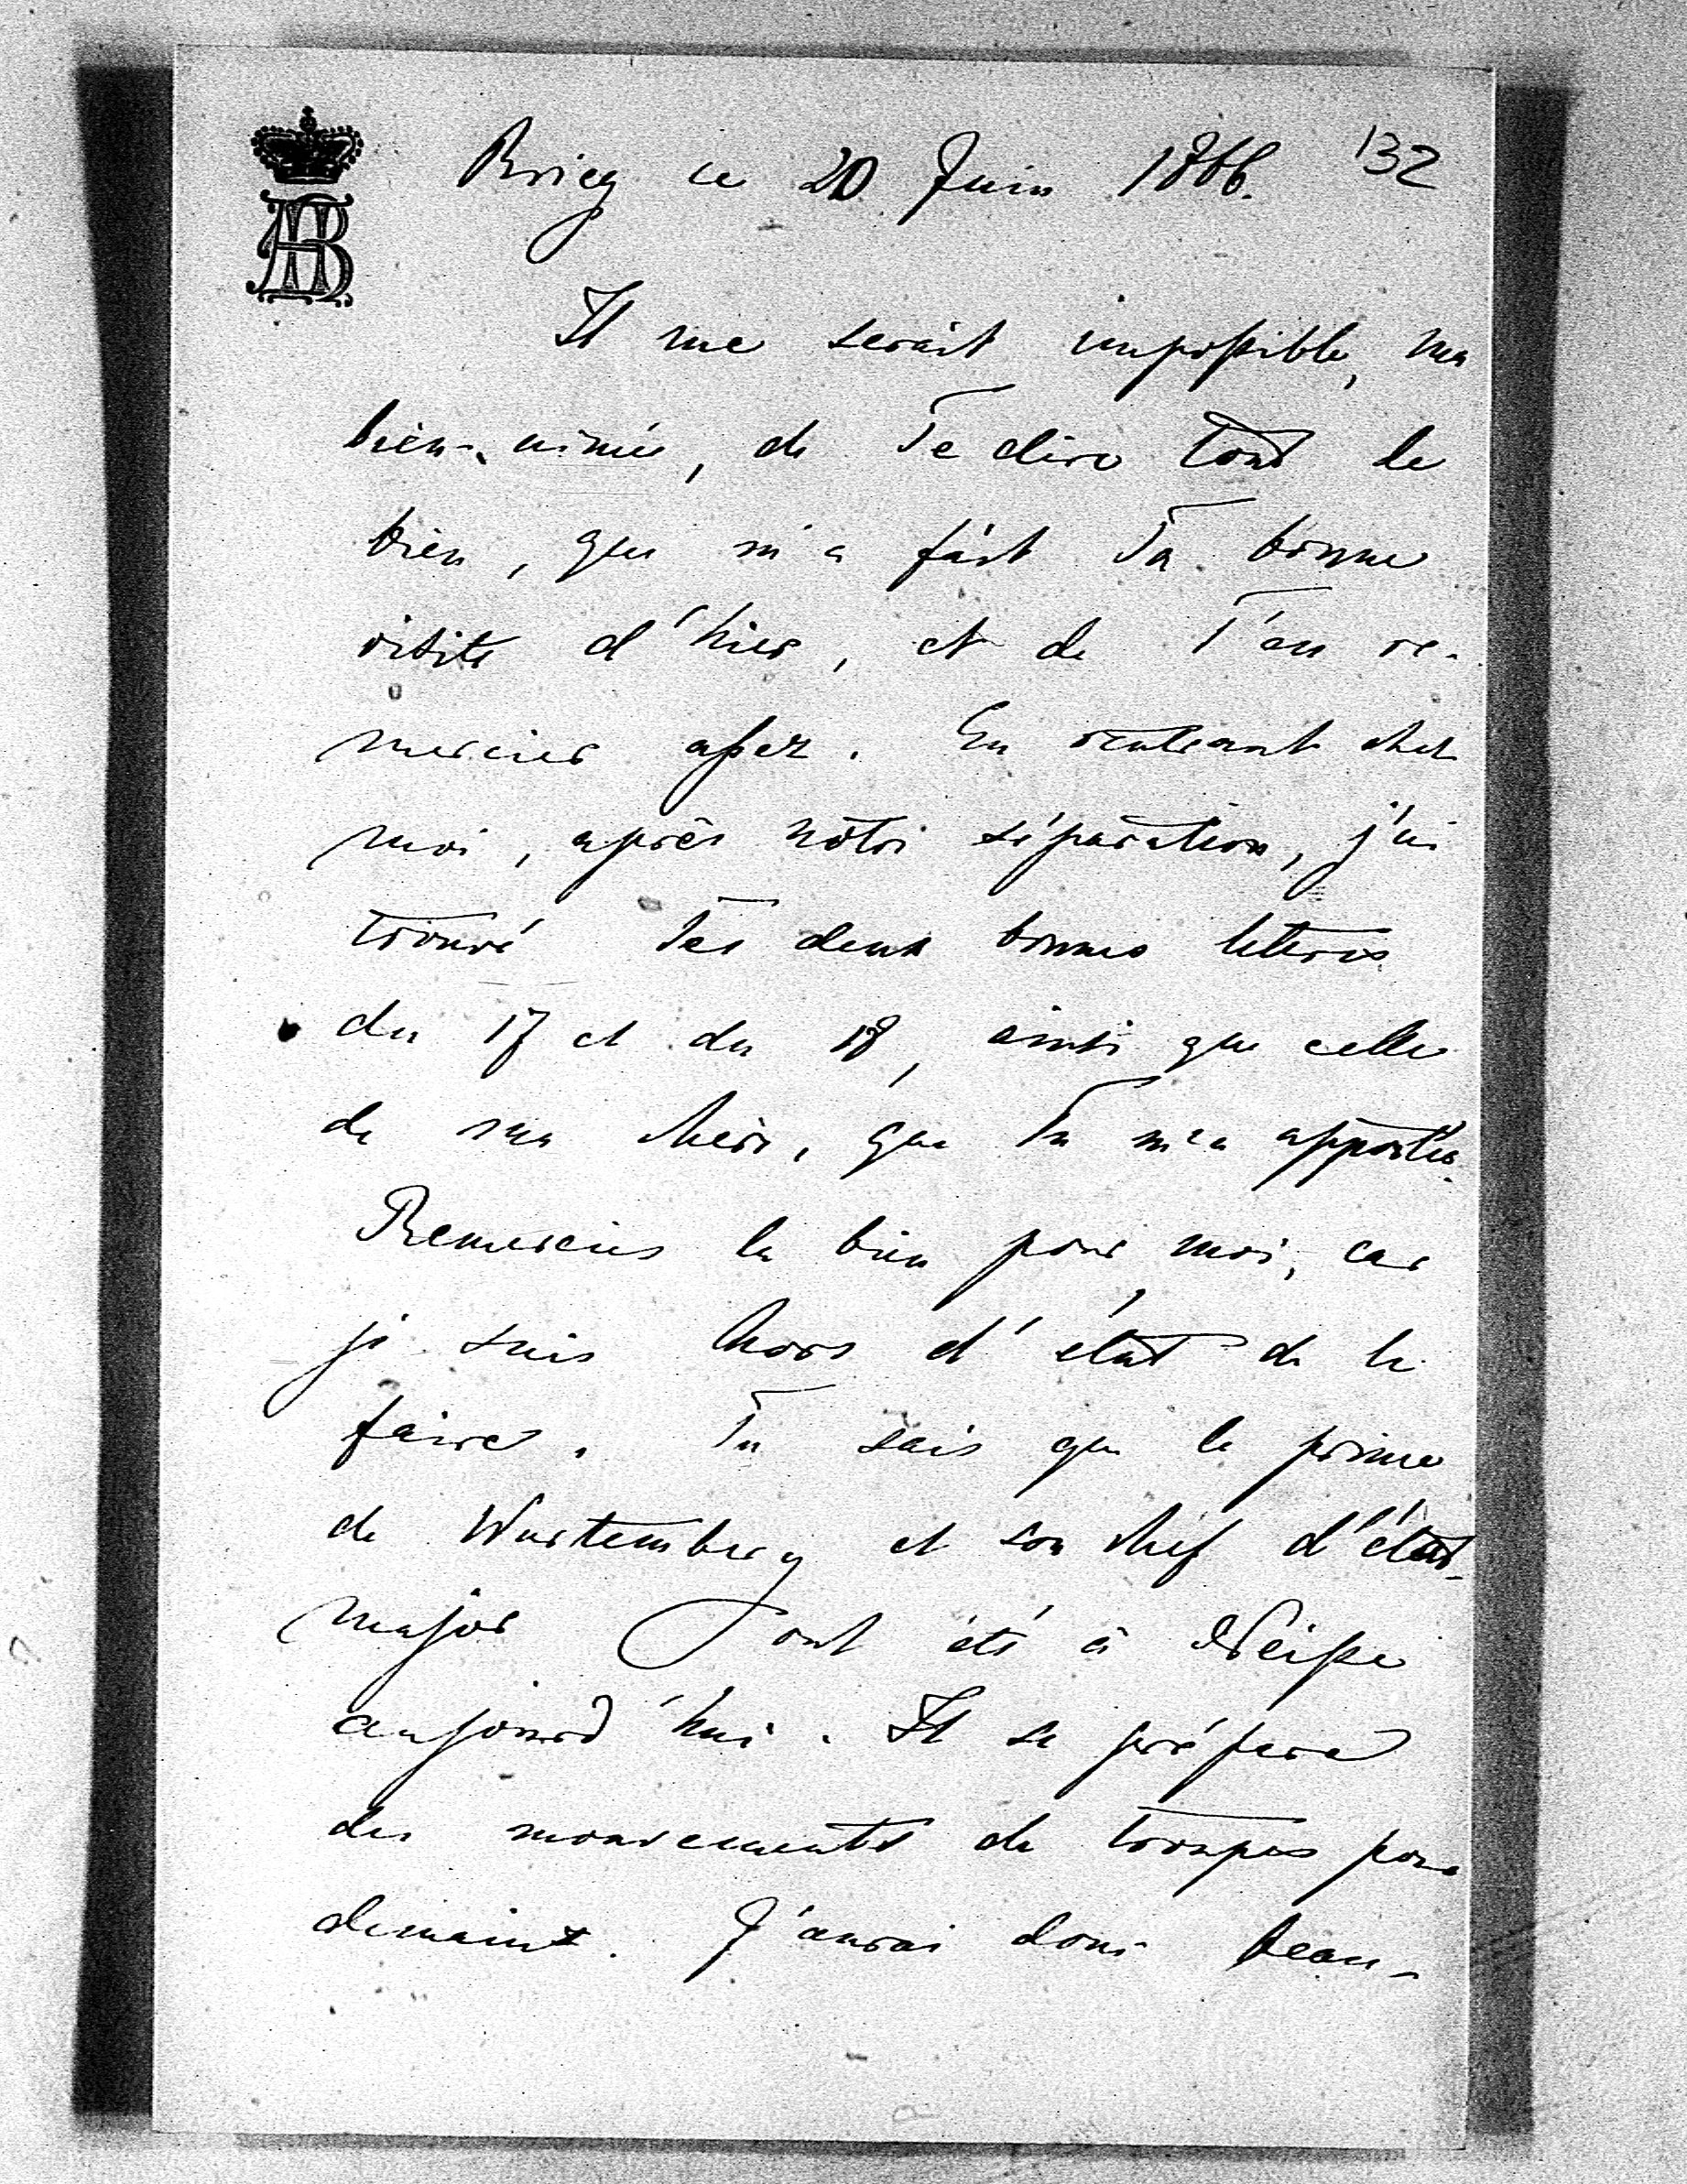 Brieg ce 20 Juin 1866. 132
AB
Il me serait impossible, ma
bien-aimée, de Te dire tout le
bien, que m'a fait Ta bonne
visite d'hier, et de T'en re-
mercier assez. En rentrant chez
moi, après nôtre séparation, j'ai
trouvé Tes deux bonnes lettres
du 17 et du 18, ainsi que celle
de ma chère, que Tu m'a apportée.
Remercies la bien pour moi, car
je suis hors d'état de le
faire. Tu sais que le prince
de Wurtemberg et son chef d'état-
major ont été à Neisse
aujourd'hui. Il se prépare
des mouvements de troupes pour
demain. J'aurai donc beau-